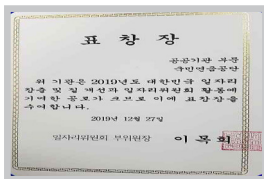 표 창 장
공공기관 부문
국민연금공단
위 기관은 2019년도 대한민국 일자리
창출 및 질 개선과 일자리위원회 활동에
기여한 공로가 크므로 이에 표창장을
수여합니다.
2019년 12월 27일
일자리위원회 부위원장 이 목 희